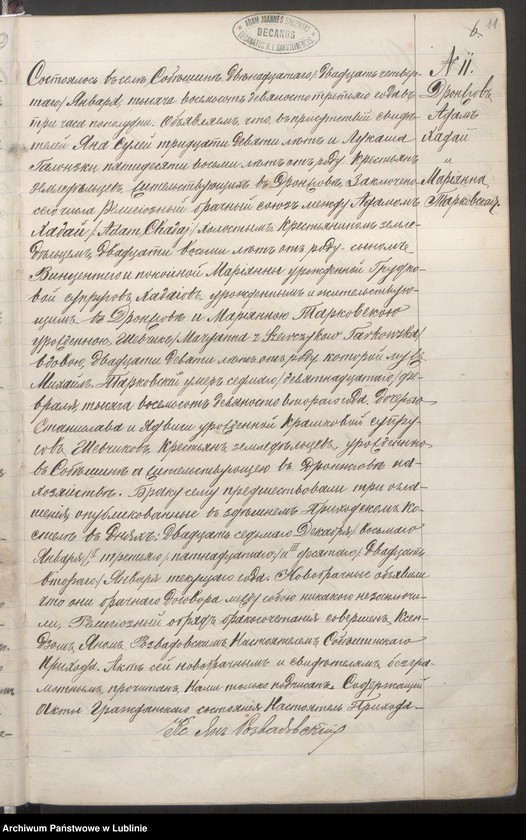 ADAM JOANNES
DECANUS
6.
11
Состоялось въ селѣ Собѣшинѣ Двѣнадцатаго/ Двадцать четвер-
таго/ Января тысяча восемьсотъ девяносто третьяго года въ
три часа пополудни. Объявляемъ, что, въ присутствіи свидѣ-
телей Яна Сулей тридцати девяти лѣтъ и Лукаша
Галонзки пятидесяти восьми лѣтъ отъ роду крестьянъ
земледѣльцевъ жительствующихъ в Дронговѣ, Заключено
сего числа религіозный брачный союзъ между Адамомъ
Хадай /Adam Chadaj/ холостымъ крестьяниномъ земле-
дѣльцемъ, двадцати восьми лѣтъ отъ роду сыномъ
Винцентего и покойной Маріанны урожденной Грудко-
вой супруговъ Хадаювъ, урожденнымъ и жительствую-
щимъ въ Дронговѣ и Маріанною Тарковскою
урожденною Шевчикъ /Maryanna z Szewczyków Tarkowska/
вдовою, двадцати девяти лѣтъ отъ роду которой мужъ
Михаилъ Тарковскій умеръ седьмаго/ девятнадцатаго/ фе-
враля, тысяча восемьсотъ девяносто второго года. Дочерью
Станислава и Ядвиги урожденной Крамковой супру-
говъ Шевчиковъ крестьянъ земледѣльцевъ, урожденною
въ Собѣшинѣ а жительствующею въ Дронговѣ на
хозяйствѣ. Браку сему предшествовали три огла-
шенія, опубликованные въ здѣшнемъ Приходскомъ Ко-
стелѣ въ дняхъ: Двадцать седьмаго Декабря/ восьмаго
Января/, третьяго/ пятнадцатаго/ и десятаго/ Двадцать
втораго/ Января текущаго года. Новобрачные объявили
что они брачнаго договора между собою никакого не заключи-
ли. Религіозный обрядъ бракосочетанія совершенъ Ксен-
дзомъ Яномъ Розвадовскимъ Настоятелемъ Собѣшинскаго
Прихода. Актъ сей новобрачнымъ и свидѣтелямъ безгра-
мотнымъ прочитанъ, Нами только подписанъ. Содержащій
Акты Гражданскаго состоянія Настоятель Прихода.
Кс Янъ Розвадовскій
№ 11.
Дронговъ
Адамъ
Хадай
и
Маріанна
Тарковская
Archiwum Państwowe w Lublinie